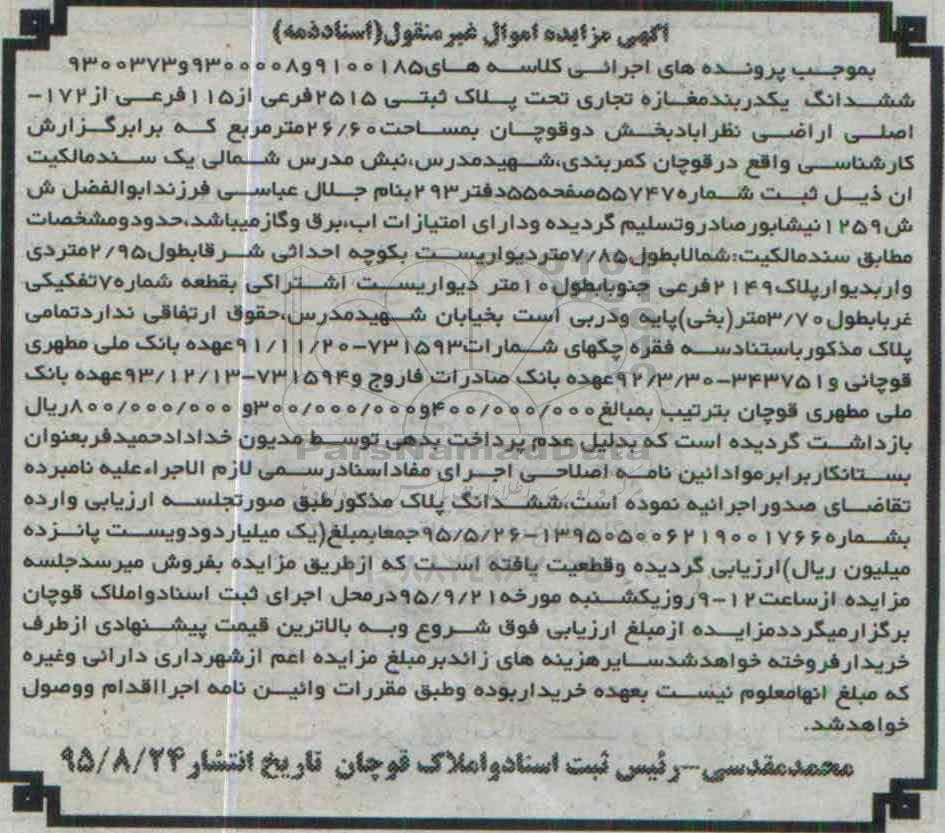 اگهی مزایده اموال غیرمنقول(اسنادذمه)
بموجب پرونده های اجرائی کلاسه های۹۱۰۰۱۸۵و۹۳۰۰۰۰۸و۹۳۰۰۳۷۳
ششدانگ یکدربندمغازه تجاری تحت پلاک ثبتی ۲۵۱۵فرعی از۱۱۵فرعی از۱۷۲-
اصلی اراضی نظرابادبخش دوقوچان بمساحت۲۶/۶۰مترمربع که برابرگزارش
کارشناسی واقع درقوچان کمربندی،شهیدمدرس،نبش مدرس شمالی یک سندمالکیت
ان ذیل ثبت شماره۵۵۷۴۷صفحه۵۵دفتر۲۹۳بنام جلال عباسی فرزندابوالفضل ش
ش۱۲۵۹نیشابورصادروتسلیم گردیده ودارای امتیازات اب،برق وگازمیباشد،حدودومشخصات
مطابق سندمالکیت:شمالابطول۷/۸۵متردیواریست بکوچه احداثی شرقابطول۲/۹۵متردی
واربدیوارپلاک۲۱۴۹فرعی جنوبابطول۱۰متر دیواریست اشتراکی بقطعه شماره۷تفکیکی
غربابطول۳/۷۰متر(بخی)پایه ودربی است بخیابان شهیدمدرس،حقوق ارتفاقی نداردتمامی
پلاک مذکورباستنادسه فقره چکهای شمارات۷۳۱۵۹۳-۹۱/۱۱/۲۰عهده بانک ملی مطهری
قوچانی و۳۴۳۷۵۱-۹۲/۳/۳۰عهده بانک صادرات فاروج و۷۳۱۵۹۴-۹۳/۱۲/۱۳عهده بانک
ملی مطهری قوچان بترتیب بمبالغ۴۰۰/۰۰۰/۰۰۰و۳۰۰/۰۰۰/۰۰۰و ۸۰۰/۰۰۰/۰۰۰ریال
بازداشت گردیده است که بدلیل عدم پرداخت بدهی توسط مدیون خدادادحمیدفربعنوان
بستانکاربرابرموادائین نامه اصلاحی اجرای مفاداسنادرسمی لازم الاجراءعلیه نامبرده
تقاضای صدوراجرائیه نموده است،ششدانگ پلاک مذکورطبق صورتجلسه ارزیابی وارده
بشماره۱۳۹۵۰۵۰۰۶۲۱۹۰۰۱۷۶۶-۹۵/۵/۲۶جمعابمبلغ(یک میلیاردودویست پانزده
میلیون ریال)ارزیابی گردیده وقطعیت یافته است که ازطریق مزایده بفروش میرسدجلسه
مزایده ازساعت۱۲-۹روزیکشنبه مورخه۹۵/۹/۲۱درمحل اجرای ثبت اسنادواملاک قوچان
برگزارمیگرددمزایده ازمبلغ ارزیابی فوق شروع وبه بالاترین قیمت پیشنهادی ازطرف
خریدارفروخته خواهدشدسایرهزینه های زائدبرمبلغ مزایده اعم ازشهرداری دارائی وغیره
که مبلغ انهامعلوم نیست بعهده خریداربوده وطبق مقررات وائین نامه اجرااقدام ووصول
خواهدشد.
محمدمقدسی-رئیس ثبت اسنادواملاک قوچان تاریخ انتشار۹۵/۸/۲۴
ParsNamadData